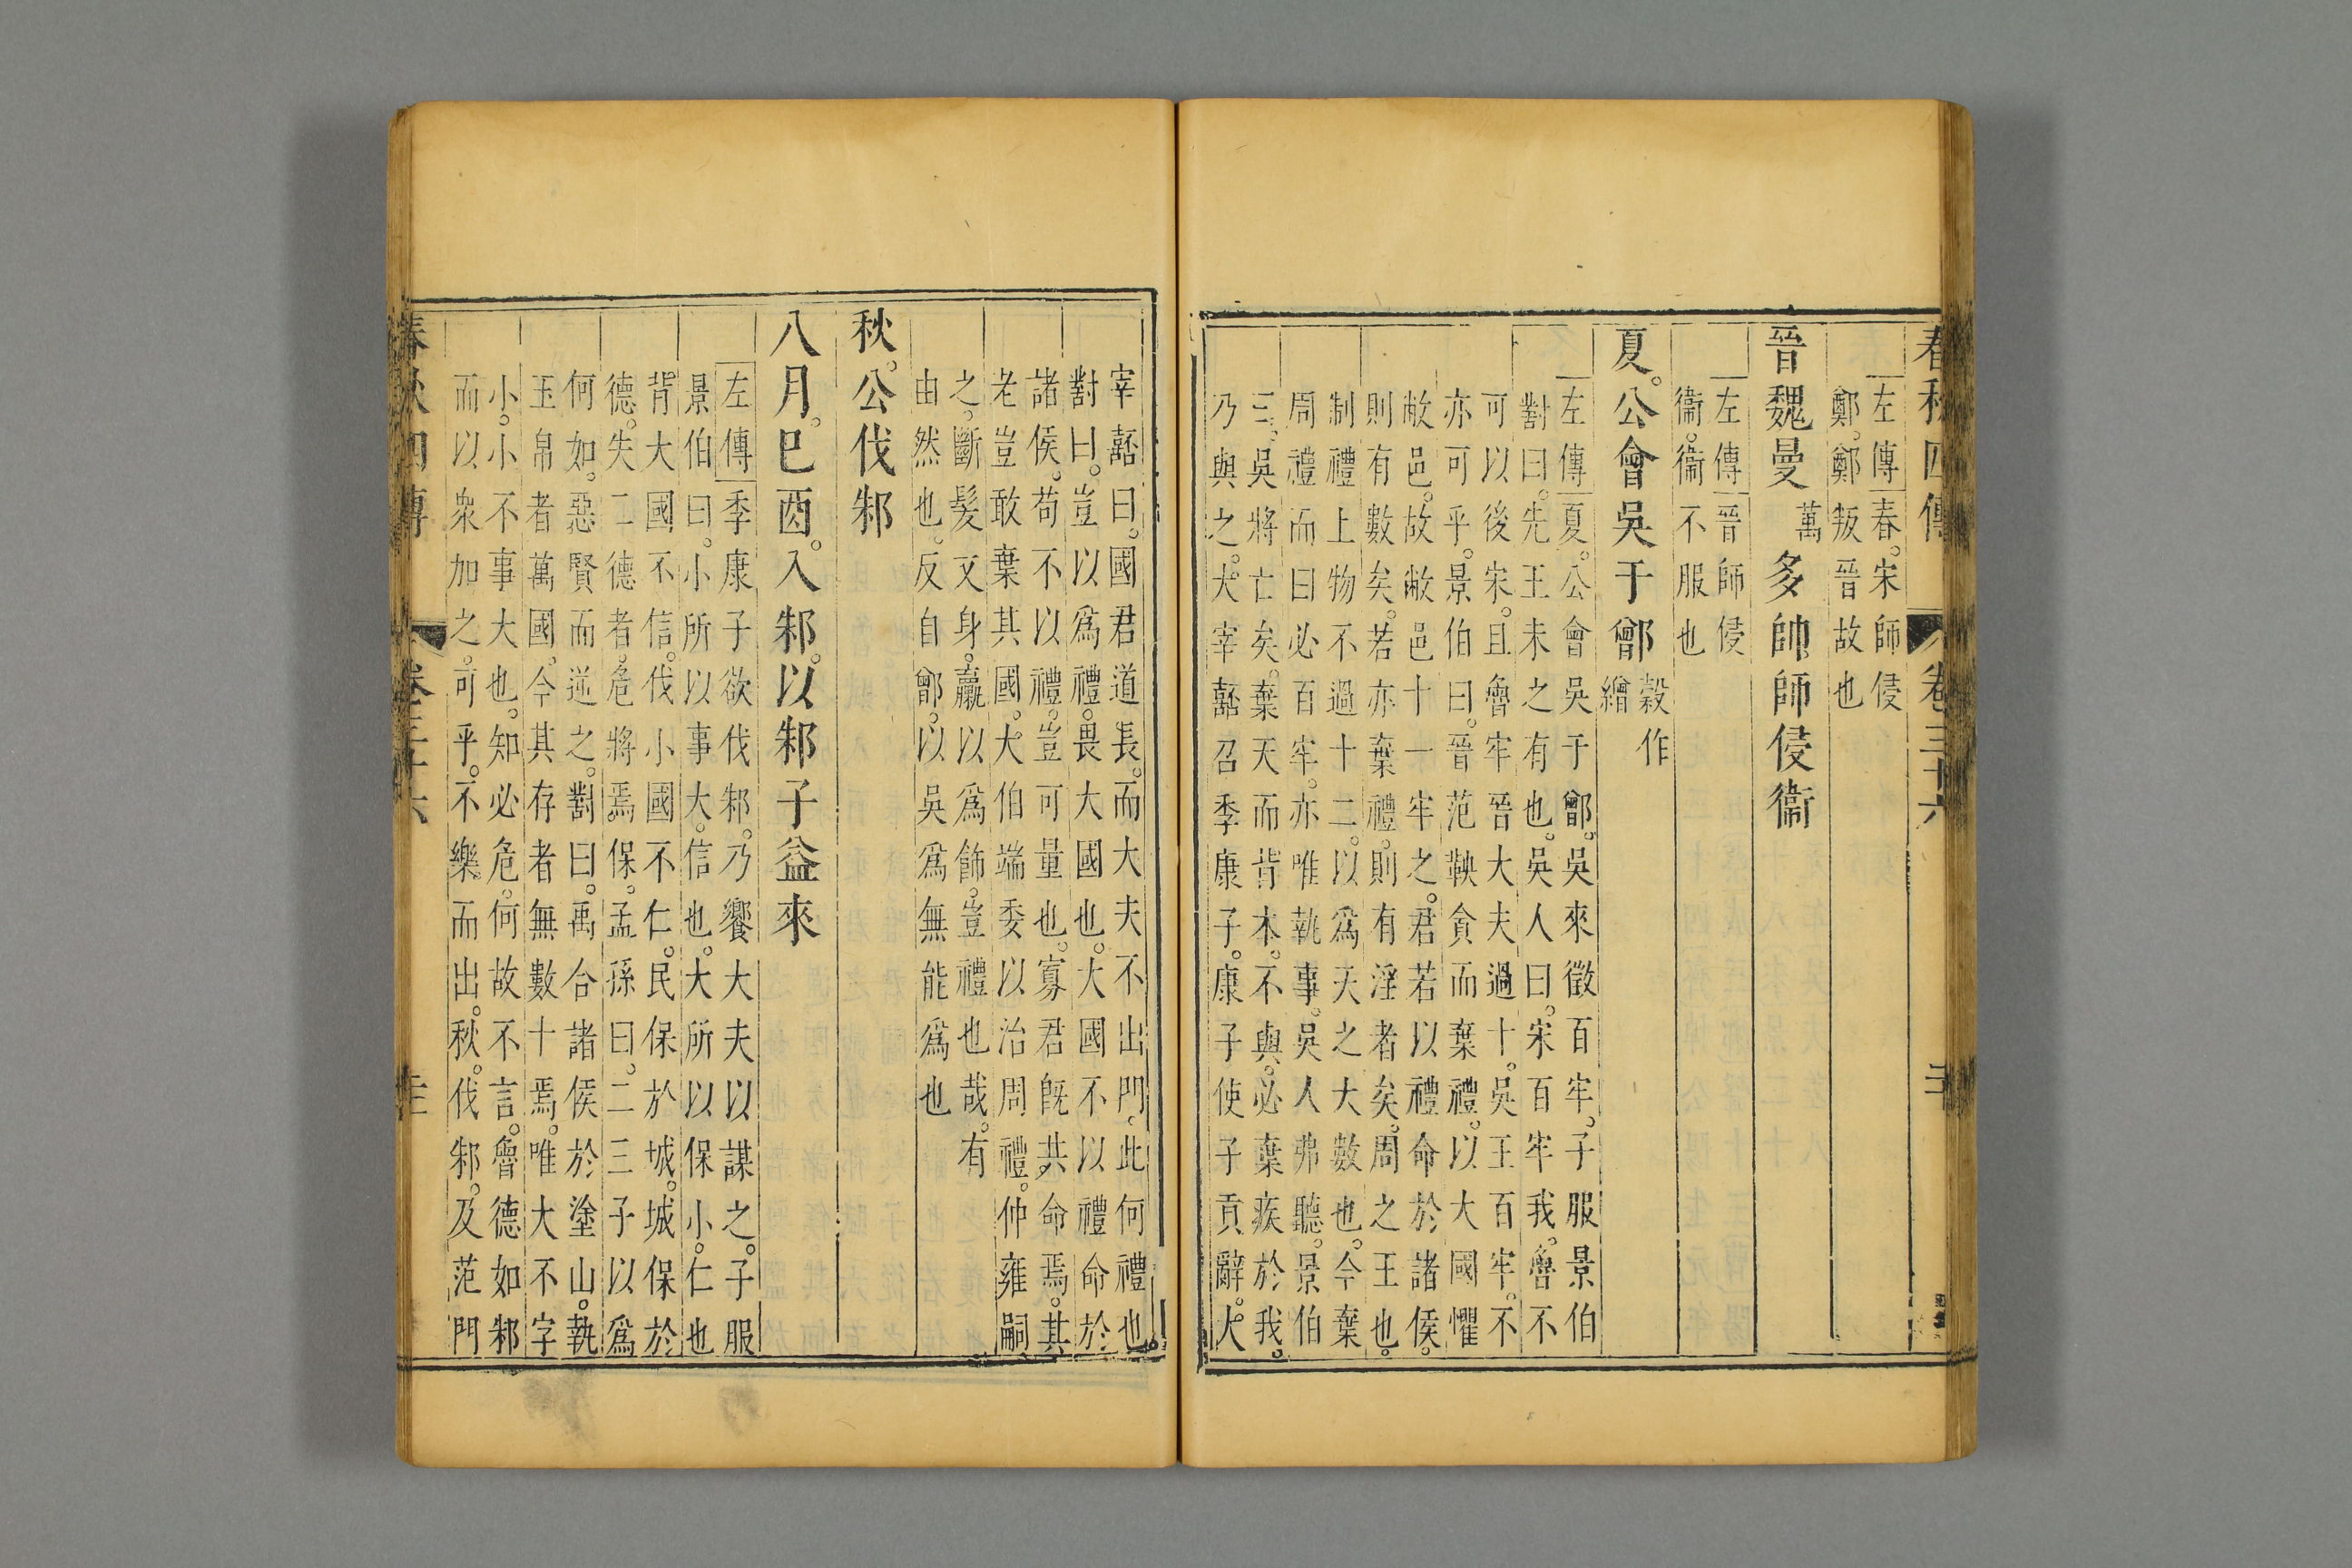 春秋四傳 卷三十六
左傳春。宋師侵
鄭。鄭叛晉故也
晉魏曼萬多帥師侵衞
左傳晉師侵
衞。衞不服也
夏。公會吳于鄫穀作
繒
左傳夏。公會吳于鄫。吳來徵百牢。子服景伯
對曰。先王未之有也。吳人曰。宋百牢我。魯不
可以後宋。且魯牢晉大夫過十。吳王百牢。不
亦可乎。景伯曰。晉范鞅貪而棄禮。以大國懼
敝邑。故敝邑十一牢之。君若以禮命於諸侯。
則有數矣。若亦棄禮。則有淫者矣。周之王也。
制禮上物不過十二。以爲天之大數也。今棄
周禮而曰必百牢。亦唯執事。吳人弗聽。景伯
曰。吳將亡矣。棄天而背本。不與。必棄疾於我。
乃與之。大宰嚭召季康子。康子使子貢辭。大
宰嚭曰。國君道長。而大夫不出門。此何禮也。
對曰。豈以爲禮。畏大國也。大國不以禮命於
諸侯。苟不以禮。豈可量也。寡君旣共命焉。其
老豈敢棄其國。大伯端委以治周禮。仲雍嗣
之。斷髮文身。臝以爲飾。豈禮也哉。有
由然也。反自鄫。以吳爲無能爲也
秋。公伐邾
八月。巳酉。入邾。以邾子益來
左傳季康子欲伐邾。乃饗大夫以謀之。子服
景伯曰。小所以事大。信也。大所以保小。仁也
背大國不信。伐小國不仁。民保於城。城保於
德。失二德者。危將焉保。孟孫曰。二三子以爲
何如。惡賢而逆之。對曰。禹合諸侯於塗山。執
玉帛者萬國。今其存者無數十焉。唯大不字
小。小不事大也。知必危。何故不言。魯德如邾
而以衆加之。可乎。不樂而出。秋。伐邾。及范門
春秋四傳 卷三十六